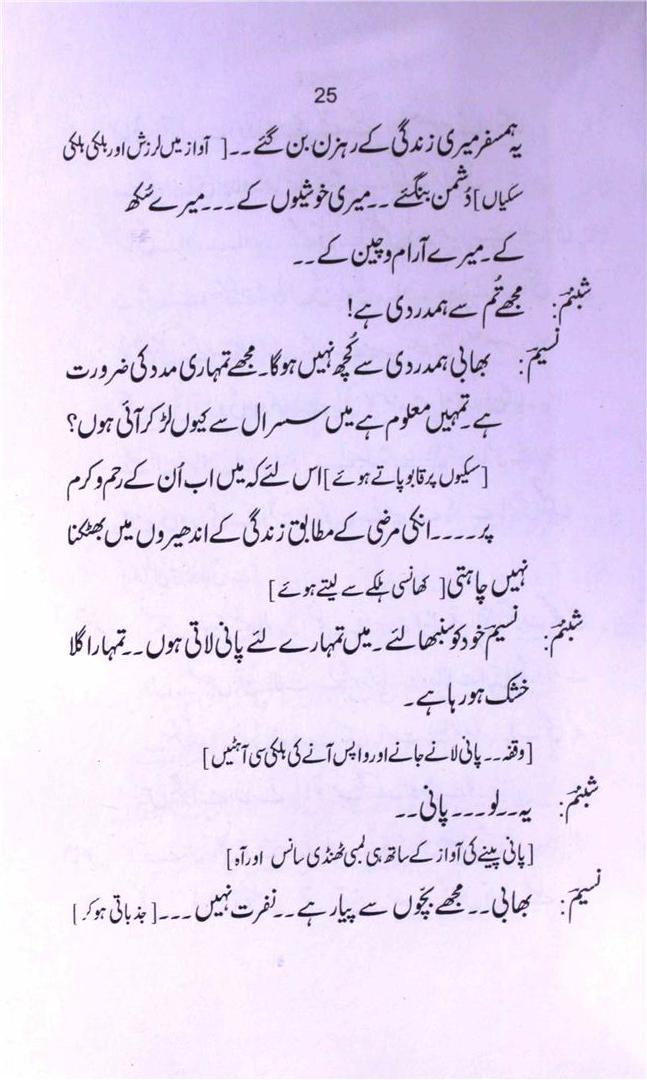 25
یہ ہمسفر میری زندگی کے رہزن بن گئے۔۔[ آواز میں لرزش اور ہلکی ہلکی
سسکیاں] دُشمن بنگئے ۔۔میری خوشیوں کے۔۔۔میرے سُکھ
کے۔میرے آرام و چین کے۔۔
شبنم: مجھے تُم سے ہمدردی ہے!
نسیم: بھابی ہمدردی سے کُچھ نہیں ہوگا۔ مجھے تمہاری مدد کی ضرورت
ہے۔تمہیں معلوم ہے میں سسرال سے کیوں لڑ کر آئی ہوں؟
[سسکیوں پر قابو پاتے ہوئے] اس لئے کہ میں اب اُن کے رحم و کرم
پر۔۔۔۔انکی مرضی کے مطابق زندگی کے اندھیروں میں بھٹکنا
نہیں چاہتی[ کھانسی ہلکے سے لیتے ہوئے]
شبنم: نسیم خود کو سنبھالئے۔میں تمہارے لئے پانی لاتی ہوں۔۔تمہارا گلا
خشک ہو رہا ہے۔
[وقفہ۔۔پانی لانے جانے اور واپس آنے کی ہلکی سی آہٹیں]
شبنم: یہ۔۔لو۔۔۔پانی۔۔
[پانی پینے کی آواز کے ساتھ ہی لمبی ٹھنڈی سانس اور آہ]
نسیم: بھابی۔۔مجھے بچّوں سے پیار ہے۔۔نفرت نہیں۔۔۔[جذباتی ہو کر]